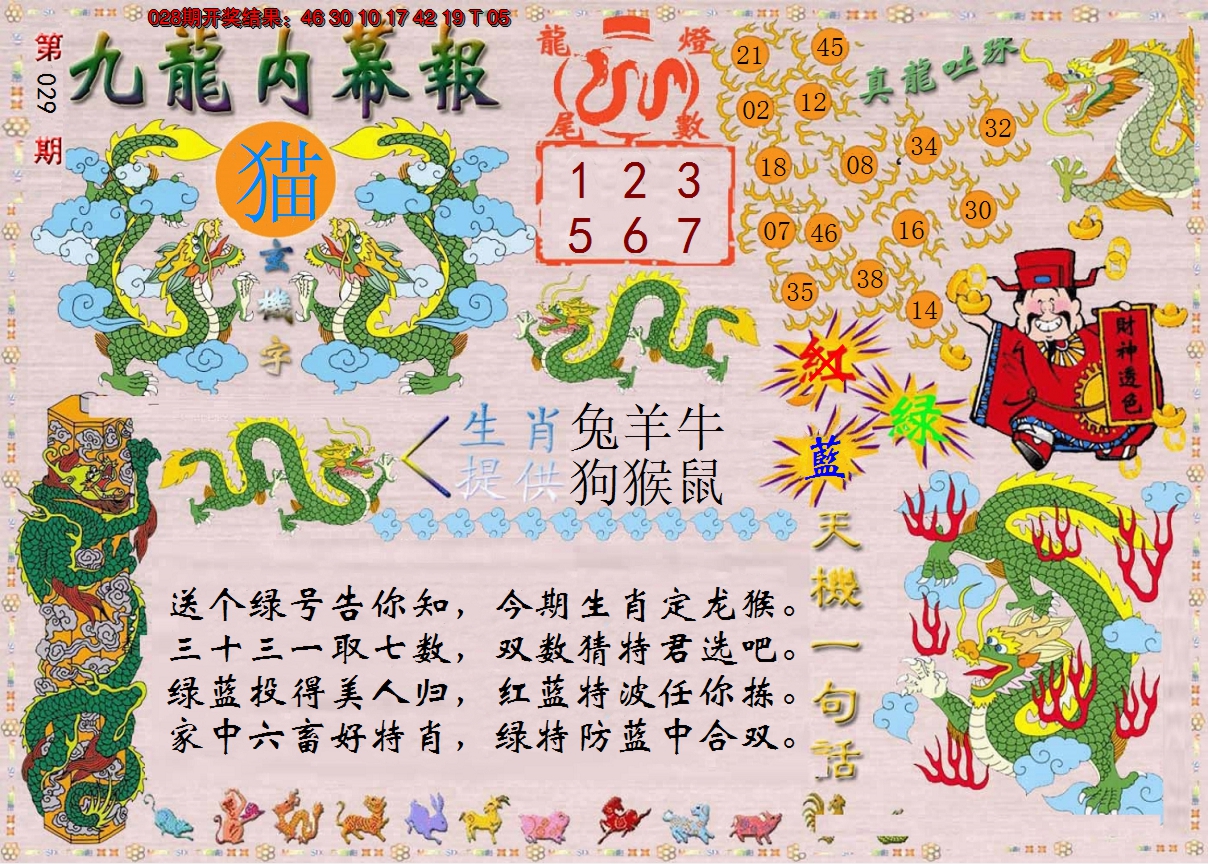 028期开奖结果：46 30 10 17 42 19 T 05
第029期
九龍内幕報
猫
玄機字
龍燈
尾數
1 2 3
5 6 7
真龍吐珠
21 45
02 12
32
34
18 08
30
07 46 16
38
35
14
財神透色
紅
绿
藍
生肖 兔羊牛
提供 狗猴鼠
天機一句話
送个绿号告你知，今期生肖定龙猴。
三十三一取七数，双数猜特君选吧。
绿蓝投得美人归，红蓝特波任你拣。
家中六畜好特肖，绿特防蓝中合双。